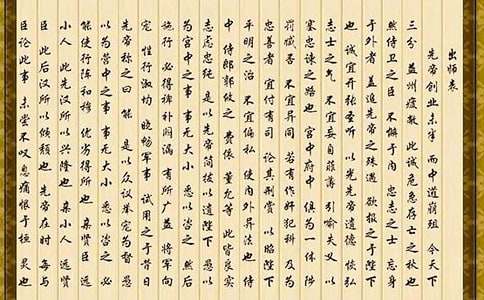 出师表
先帝创业未半 而中道崩殂 今天下
三分 益州疲敝 此诚危急存亡之秋也
然侍卫之臣 不懈于内 忠志之士 忘身
于外者 盖追先帝之殊遇 欲报之于陛下
也 诚宜开张圣听 以光先帝遗德 恢弘
志士之气 不宜妄自菲薄 引喻失义 以
塞忠谏之路也 宫中府中 俱为一体 陟
罚臧否 不宜异同 若有作奸犯科 及为
忠善者 宜付有司 论其刑赏 以昭陛下
平明之治 不宜偏私 使内外异法也 侍
中 侍郎郭攸之 费祎 董允等 此皆良实
志虑忠纯 是以先帝简拔以遗陛下 愚以
为宫中之事 事无大小 悉以咨之 然后
施行 必得裨补阙漏 有所广益 将军向
宠 性行淑均 晓畅军事 试用之于昔日
先帝称之曰 能 是以众议举宠为督 愚
以为营中之事 事无大小 悉以咨之 必
能使行阵和穆 优劣得所也 亲贤臣 远
小人 此先汉所以兴隆也 亲小人 远贤
臣 此后汉所以倾颓也 先帝在时 每与
臣论此事 未尝不叹息痛恨于桓 灵也